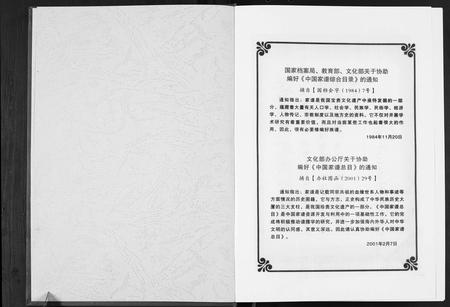 国家档案局、教育部、文化部关于协助
编好《中国家谱综合目录》的通知
摘自【国档会字(1984)7号】
通知指出:家谱是我国宝贵文化遗产中亟待发掘的一部
分,蕴藏着大量有关人口学、社会学、民族学、民俗学、经济
学、人物传记、宗教制度以及地方史的资料,它不仅对开展学
术研究有着重要价值,而且对当前某些工作也起着很大的作
用。因此,很有必要修编好族谱。
1984年11月20日
文化部办公厅关于协助
编好《中国家谱总目》的通知
摘自【办社图函(2001)29号】
通知指出:家谱是记载同宗共祖的血缘世系人物和事迹等
方面情况的历史图籍,它与方志、正史构成了中华民族历史大
厦的三大支柱,是我国珍贵文化遗产的一部分。《中国家谱总
目》是中国家谱资源开发与利用中的一项基础性工作,它的完
成将积极推动谱牒学的研究,并进一步加强海内外华人对中华
文明的认同感,其意义深远。因此请认真协助编好《中国家谱
总目》。
2001年2月7日